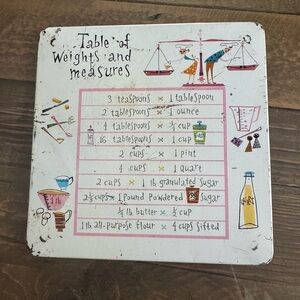 Table of
Weights and
measures
3 teaspoons × 1 tablespoon
2 tablespoons × 1 ounce
4 tablespoons × ¼ cup
16 tablespoons × 1 cup
2 cups × 1 pint
4 cups × 1 quart
2 cups × 1 lb granulated sugar
2½ cups × 1 pound powdered sugar
¼ lb butter × ½ cup
1 lb all-purpose flour × 4 cups sifted